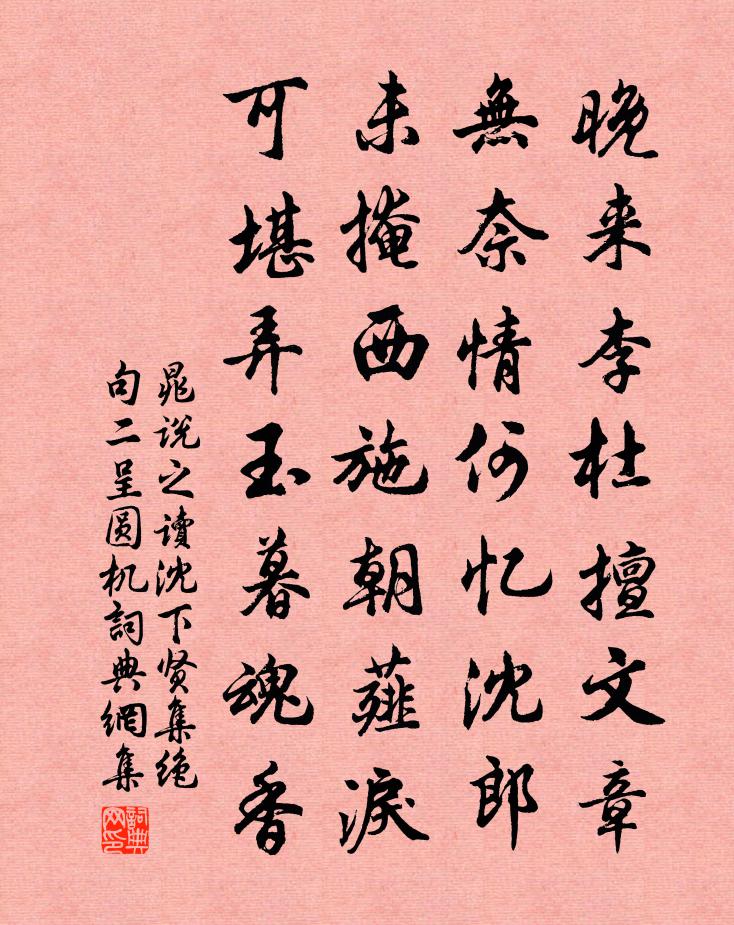 晚来李杜擅文章
無奈情何忆沈郎
未掩西施朝薤淚
可堪弄玉暮魂香
晁说之讀沈下贤集绝
句二呈圆机詞典網集
詞典
网印